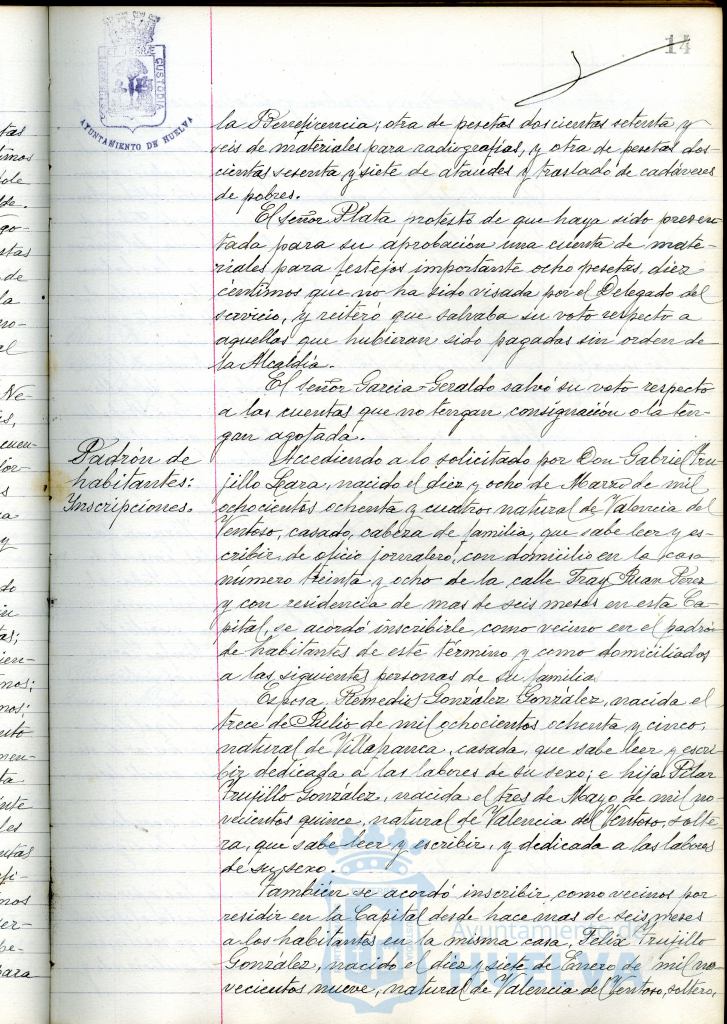 14
AYUNTAMIENTO DE HUELVA
la Beneficencia; otra de pesetas doscientas setenta y
seis de materiales para radiografias, y otra de pesetas dos-
cientas sesenta y siete de ataudes y traslado de cadáveres
de pobres.
El señor Plata protestó de que haya sido presen-
tada para su aprobación una cuenta de mate-
riales para festejos importante ocho pesetas, diez
céntimos que no ha sido visada por el Delegado del
servicio, y reiteró que salvaba su voto respecto a
aquellas que hubieran sido pagadas sin orden de
la Alcaldía.
El señor Garcia-Geraldo salvó su voto respecto
a las cuentas que no tengan consignación o la ten-
gan agotada.
Padrón de
habitantes:
Inscripciones.
Accediendo a lo solicitado por Don Gabriel Tru-
jillo Lara, nacido el diez y ocho de Marzo de mil
ochocientos ochenta y cuatro, natural de Valencia del
Ventoso, casado, cabeza de familia, que sabe leer y es-
cribir, de oficio jornalero, con domicilio en la casa
número treinta y ocho de la calle Fray Juan Pérez
y con residencia de mas de seis meses en esta Ca-
pital, se acordó inscribirle como vecino en el padrón
de habitantes de este término y como domiciliados
a las siguientes personas de su familia
Esposa, Remedios González González, nacida el
trece de Julio de mil ochocientos ochenta y cinco,
natural de Villafranca, casada, que sabe leer y escri-
bir dedicada a las labores de su sexo; e hija Pilar
Trujillo González, nacida el tres de Mayo de mil no-
vecientos quince, natural de Valencia del Ventoso, solte-
ra, que sabe leer y escribir, y dedicada a las labores
de su sexo.
También se acordó inscribir, como vecinos por
residir en la Capital desde hace mas de seis meses
a los habitantes en la misma casa, Felix Trujillo
González, nacido el diez y siete de Enero de mil no-
vecientos nueve, natural de Valencia del Ventoso, soltero,
Ayuntamiento de
HUELVA